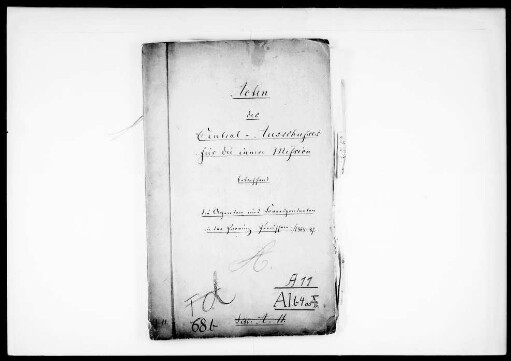 Acten
des
Central-Ausschusses
für die innere Mission
betreffend
die Agenten und Correspondenten
in der Provinz Preußen 1849-
A.
A 11
F
A I b 4
68b